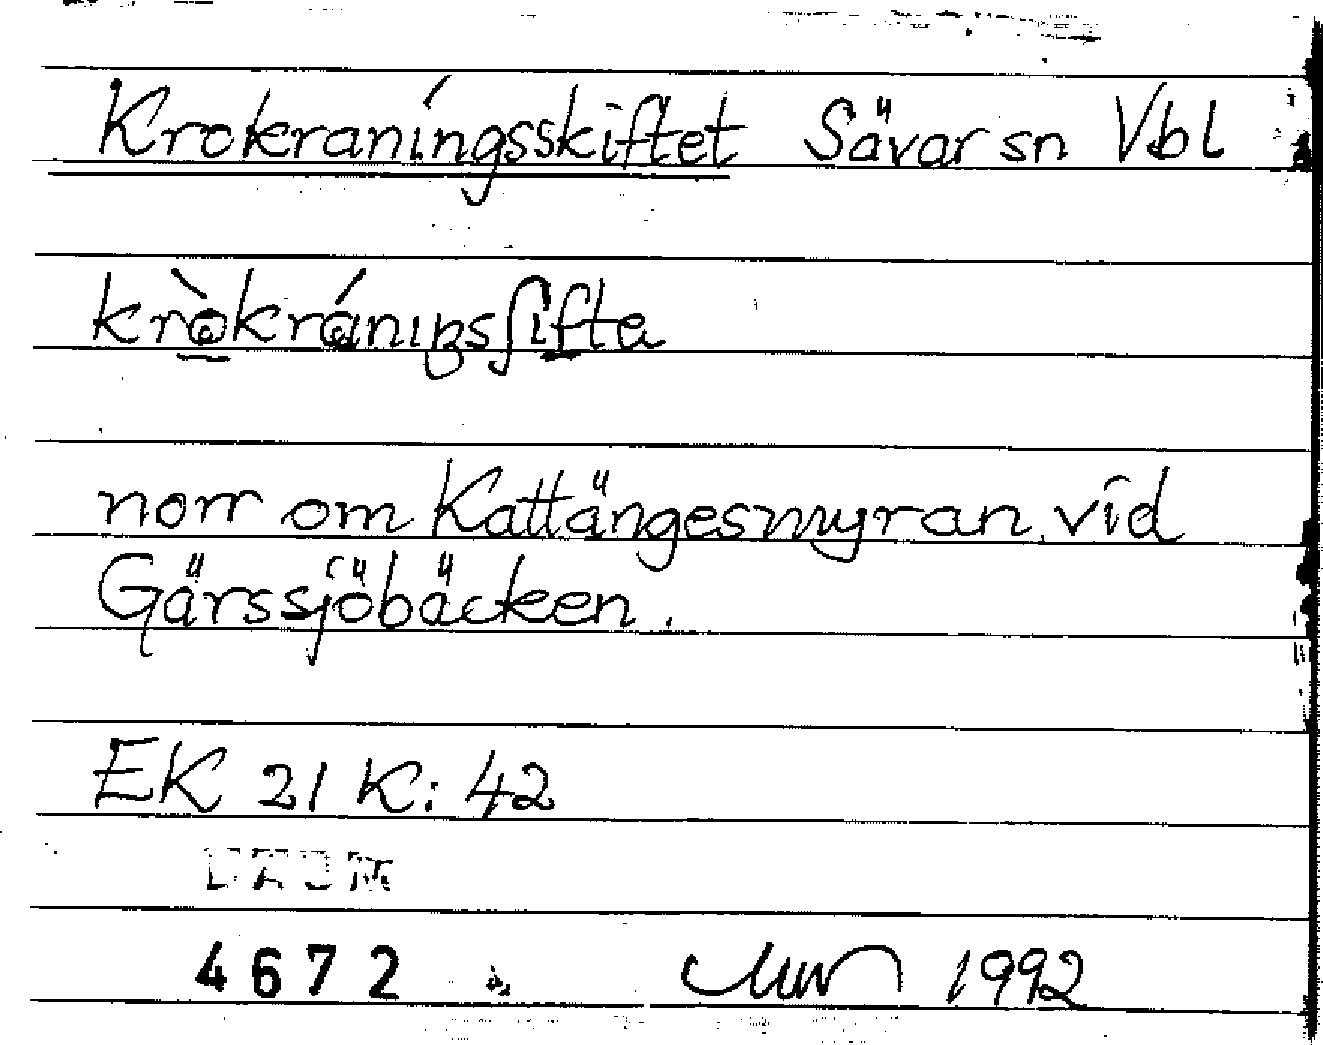 Krokraníngsskiftet Sävar sn Vbl
kròkránıŋsʃıfta
norr om Kattängesmyran vid
Gärssjöbäcken.
EK 21 K: 42
DAUM
4672 1992